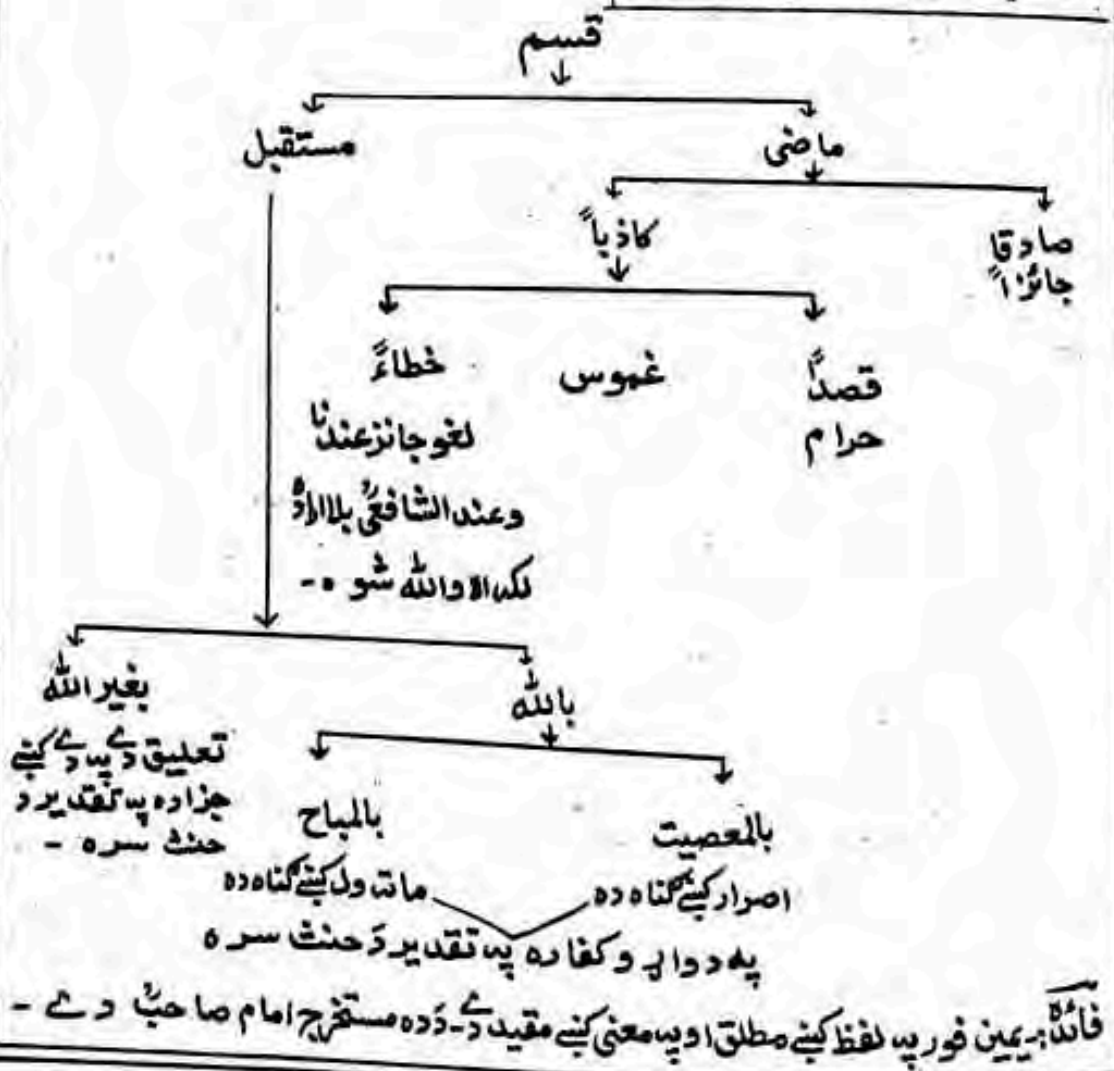 قسم
ماضی
مستقبل
صادقا
جائزاً
کاذباً
قصداً
حرام
غموس
خطاءً
لغو جائز عندنا
وعند الشافعیؒ بلا ارادہ
لکہ لا والله شوہ۔
بالله
بغیر الله
تعلیق دے پہ دے کښے
جزا دہ پہ تقدیر د
حنث سرہ ۔
بالمعصیت
اصرار کښے گناہ دہ
بالمباح
ماتول کښے گناہ دہ
پہ دواړو کفارہ پہ تقدیر دَ حنث سرہ
فائدہ:۔ یمین فور پہ لفظ کښے مطلق او پہ معنی کښے مقید دے۔ دَدہ مستخرج امام صاحبؒ دے ۔